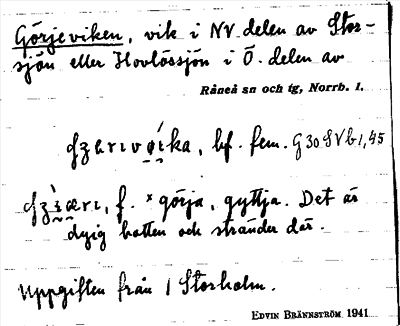 Görjeviken, vik i NV delen av Stor-
sjön eller Hovlössjön i Ö. delen av
Råneå sn och tg, Norrb. l.
bf. fem. G30 SVb1,45
f. x görja, gyttja. Det är
dyig botten och stränder där.
Uppgiften från 1 Storholm.
EDVIN BRÄNNSTRÖM 1941